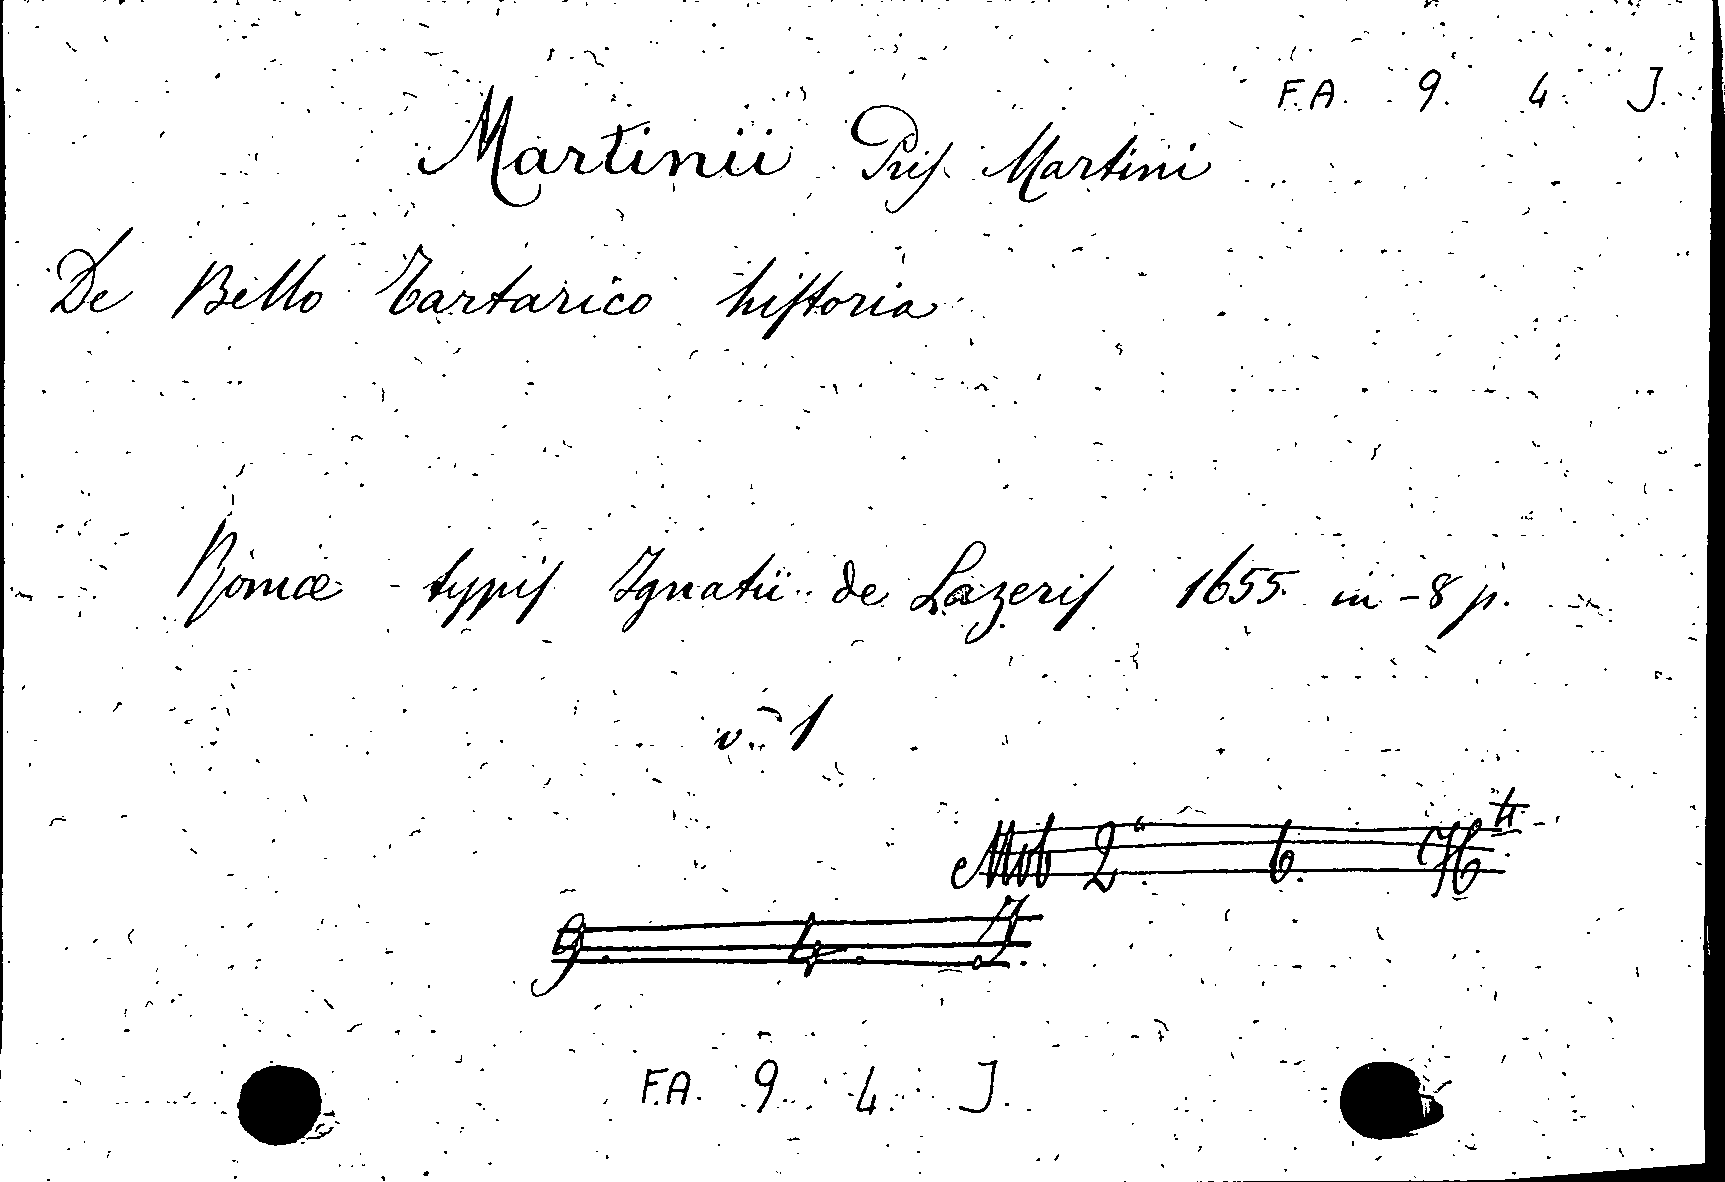 F.A. 9. 4. J.
Martinii Pris. Martini
De Bello Tartarico historia
Romæ typis Ignatii de Lazeris 1655 in-8 p.
v. 1
Mob 2ª 6. H⁴
9. 4. J.
F.A. 9. 4. J.